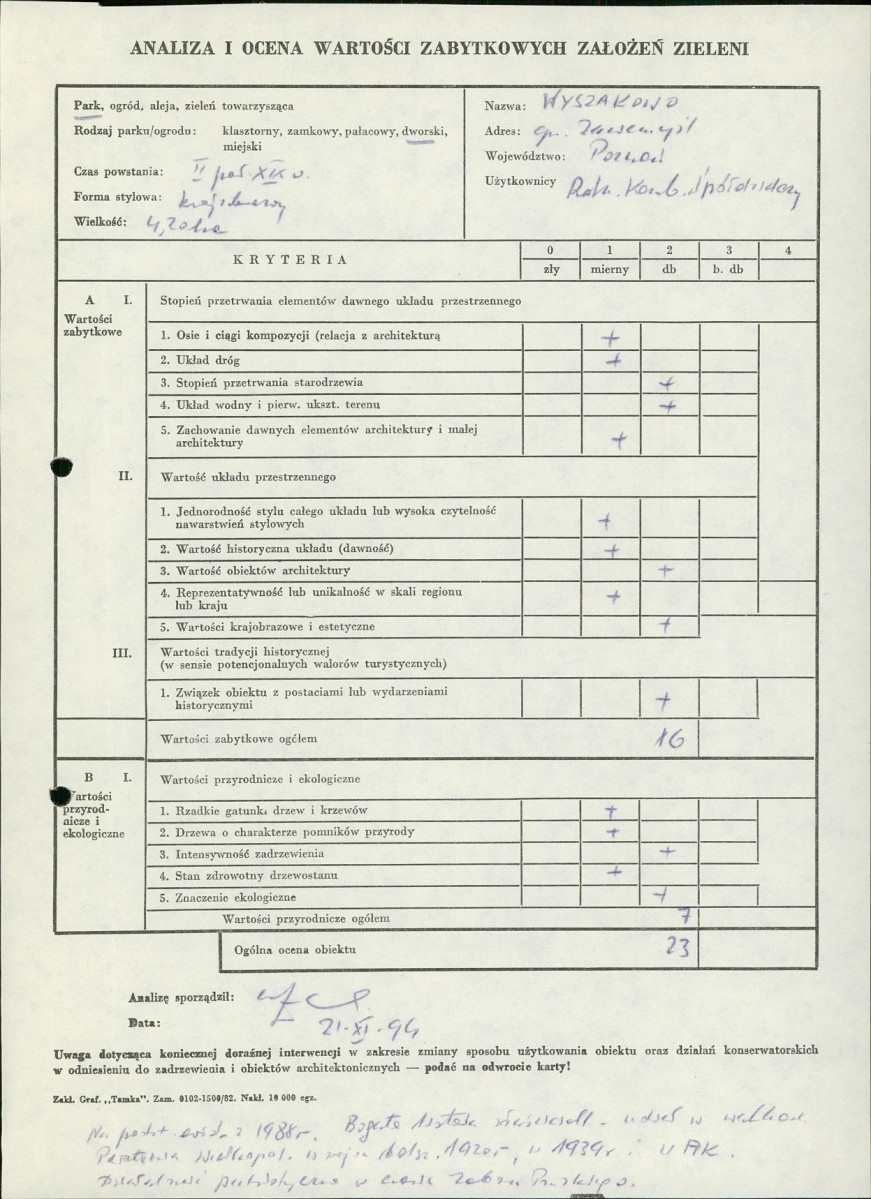 ANALIZA I OCENA WARTOŚCI ZABYTKOWYCH ZAŁOŻEŃ ZIELENI
Park, ogród, aleja, zieleń towarzysząca
Rodzaj parku/ogrodu: klasztorny, zamkowy, pałacowy, dworski,
miejski
Czas powstania: II poł. XIX w.
Forma stylowa: krajobrazowy
Wielkość: 4,20 ha
Nazwa: WYSZAKOWO
Adres: gm. Zaniemyśl
Województwo: Poznań
Użytkownicy Roln. Komb. Spółdzielczy
KRYTERIA
0 1 2 3 4
zły mierny db b. db
A I. Stopień przetrwania elementów dawnego układu przestrzennego
Wartości
zabytkowe
1. Osie i ciągi kompozycji (relacja z architekturą +
2. Układ dróg +
3. Stopień przetrwania starodrzewia +
4. Układ wodny i pierw. ukszt. terenu +
5. Zachowanie dawnych elementów architektury i małej
architektury +
II. Wartość układu przestrzennego
1. Jednorodność stylu całego układu lub wysoka czytelność
nawarstwień stylowych +
2. Wartość historyczna układu (dawność) +
3. Wartość obiektów architektury +
4. Reprezentatywność lub unikalność w skali regionu
lub kraju +
5. Wartości krajobrazowe i estetyczne +
III. Wartości tradycji historycznej
(w sensie potencjonalnych walorów turystycznych)
1. Związek obiektu z postaciami lub wydarzeniami
historycznymi +
Wartości zabytkowe ogółem 16
B I. Wartości przyrodnicze i ekologiczne
Wartości
przyrod-
nicze i
ekologiczne
1. Rzadkie gatunki drzew i krzewów +
2. Drzewa o charakterze pomników przyrody +
3. Intensywność zadrzewienia +
4. Stan zdrowotny drzewostanu +
5. Znaczenie ekologiczne +
Wartości przyrodnicze ogółem 7
Ogólna ocena obiektu 23
Analizę sporządził:
Data: 21·XI·94
Uwaga dotycząca koniecznej doraźnej interwencji w zakresie zmiany sposobu użytkowania obiektu oraz działań konserwatorskich
w odniesieniu do zadrzewienia i obiektów architektonicznych — podać na odwrocie karty!
Zakł. Graf. „Tamka". Zam. 0102-1500/82. Nakł. 10 000 egz.
Na podst. ewid. z 1988 r. Bogata - udział w walkach
Powstania Wielkopol. w wojnie bolsz. 1920 r, w 1939 r i w AK.
Działalność patriotyczna w czasie Zaboru Pruskiego.